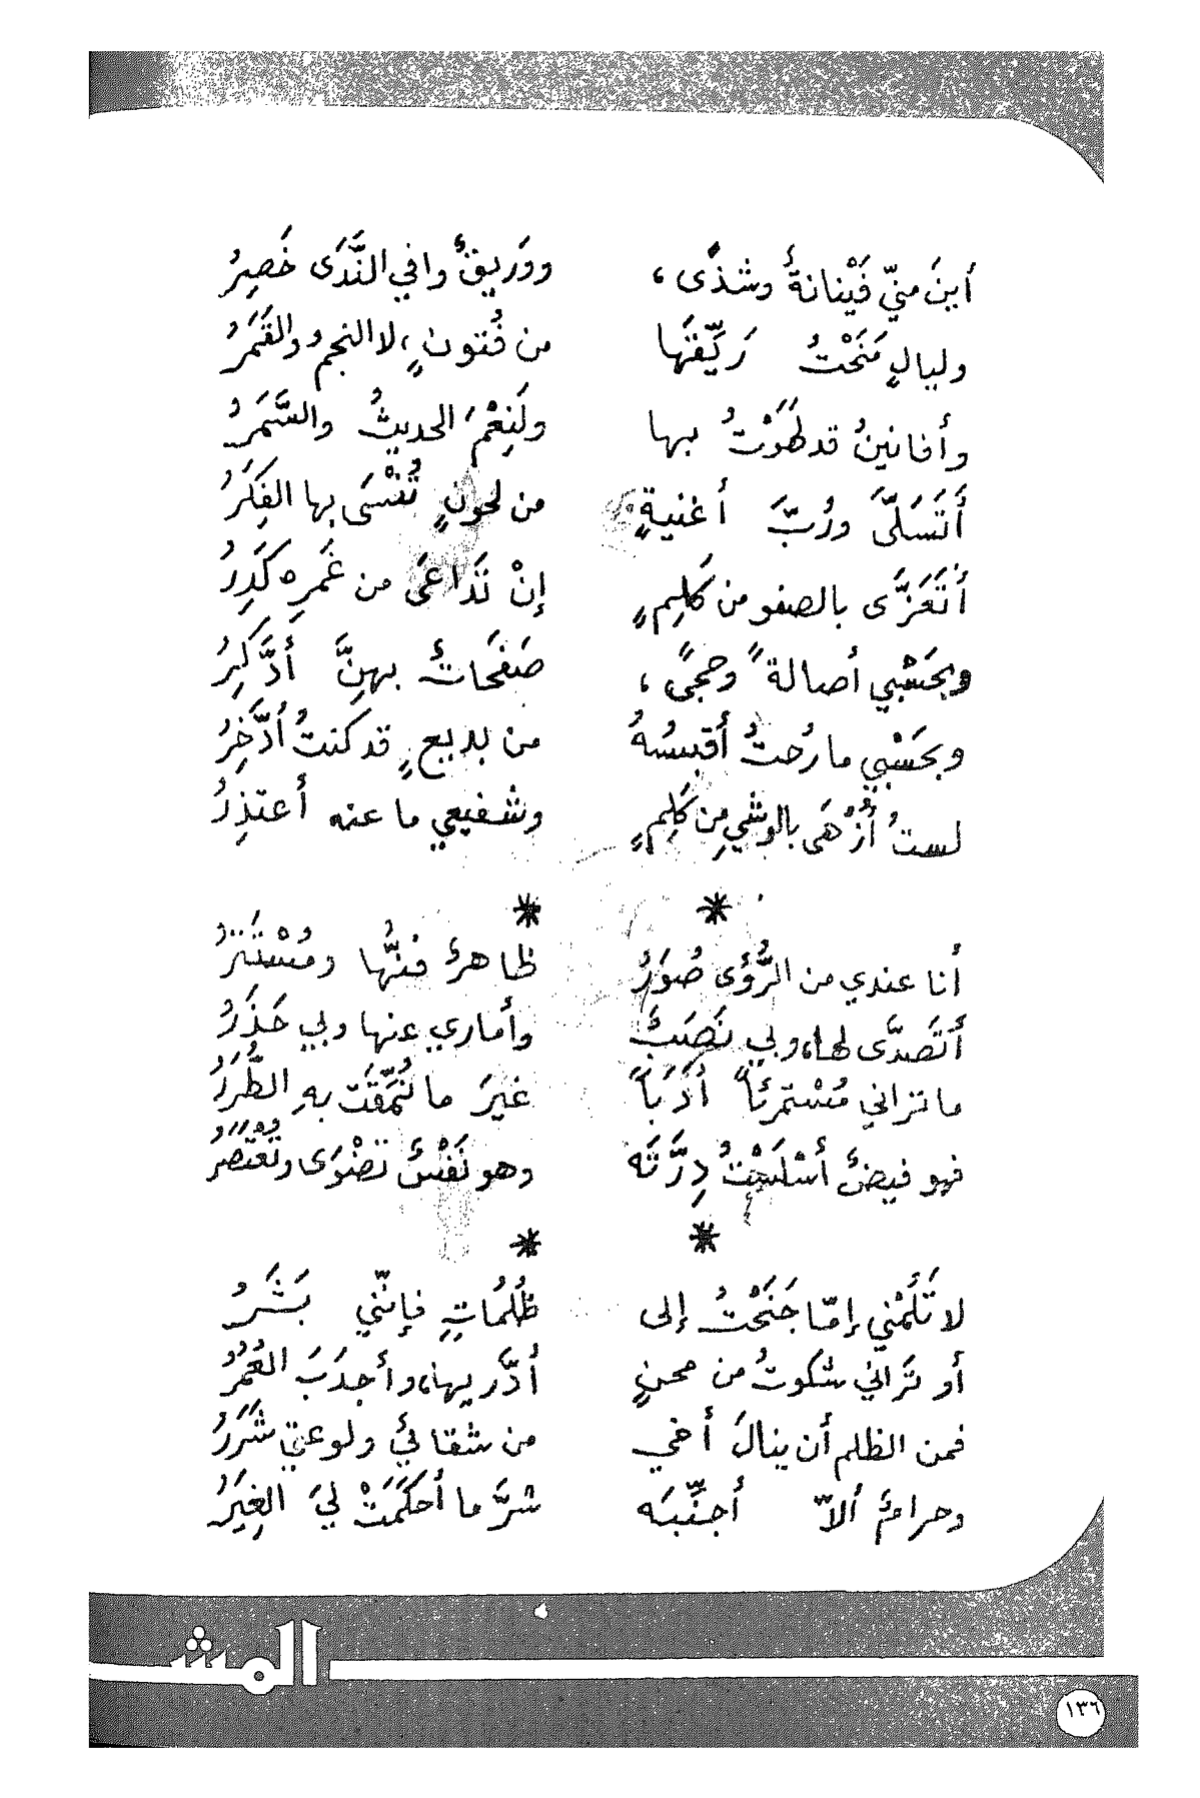 أينَ منّي فَيْنانةٌ وشذًى، ووَريقٌ وافي النَّدَى خَصِرُ
وليالٍ مَنَحْتُ رَيِّقَها من فُتونٍ، لا النجمُ والقَمَرُ
وأفانينُ قد لَهَوْتُ بها ولَنِعْمَ الحديثُ والسَّمَرُ
أَتَسَلَّى ورُبَّ أغنيةٍ من لحونٍ تُنْسَى بها الفِكَرُ
أتَعَزَّى بالصفو من كَلِمٍ إنْ تَداعَى من غَمرِه كَدَرُ
وبحَسْبي أصالةً وحجىً، صَفَحاتٌ بهنَّ أدَّكِرُ
وبحَسْبي ما رُحتُ أقبسُهُ من بديعٍ قد كنتُ أدَّخِرُ
لستُ أُزْهَى بالوشيِ مِن كَلِمٍ وشفيعي ما عنه أعتذِرُ
* *
أنا عندي من الرُّؤى صُوَرُ ظاهرٌ فنُّها ومُسْتَتِرُ
أتَصَدَّى لها، وبي نَصَبٌ وأماري عنها وبي حَذَرُ
ما تراني مُسْتمرئاً أدَبَاً غيرَ ما نُمِّقَت بهِ الطُّرَرُ
فهو فيضٌ أسْلَسْتُ دِرَّتَه وهو نَفْسٌ تَضْوَى وتُعْتَصَرُ
* *
لا تَلُمْني إمّا جَنَحْتُ إلى ظُلُماتٍ فإنّني بَشَرُ
أو تَراني شكوتُ من محنٍ أدَّريها، وأجدَبَ العُمُرُ
فمن الظلم أن ينالَ أخي من شقائي ولوعتي شَرَرُ
وحرامٌ ألاّ أجنِّبَه شرَّ ما أحكَمَتْ ليَ الغِيَرُ
المشـ
١٣٦